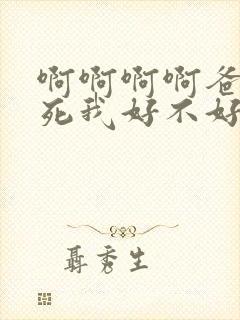 啊啊啊啊爸
死我好不好
聂秀生